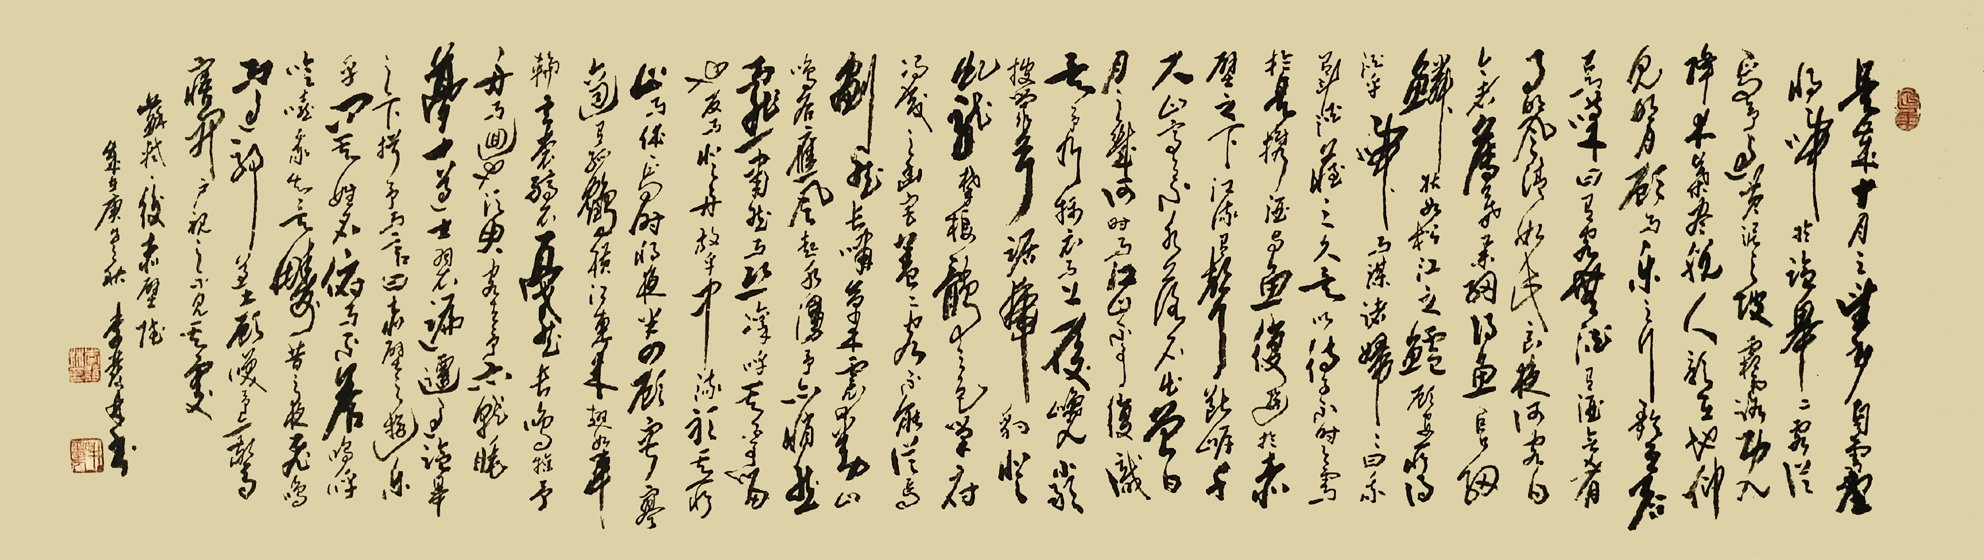 是歲十月之望步自雪堂
將歸於臨皋二客從
予過黃泥之坂霜露既
降木葉盡脫人影在地仰
見明月顧而樂之行歌相答
已而嘆曰有客無酒有酒無肴
月白風清如此良夜何客曰
今者薄暮舉網得魚巨口細
鱗狀如松江之鱸顧安所得
酒乎歸而謀諸婦婦曰我
有斗酒藏之久矣以待子不時之需
於是攜酒與魚復遊於赤
壁之下江流有聲斷岸千
尺山高月小水落石出曾日
月之幾何而江山不可復識
矣予乃攝衣而上履巉巖
披蒙茸踞虎豹登
虬龍攀棲鶻之危巢俯
馮夷之幽宮蓋二客不能從焉
劃然長嘯草木震動山
鳴谷應風起水湧予亦悄然
而悲肅然而恐凜乎其不可留
也反而登舟放乎中流聽其所
止而休焉時夜將半四顧寂寥
適有孤鶴橫江東來翅如車
輪玄裳縞衣戛然長鳴掠予
舟而西也須臾客去予亦就睡
夢一道士羽衣蹁躚過臨皋
之下揖予而言曰赤壁之遊樂
乎問其姓名俯而不答嗚呼
噫嘻我知之矣疇昔之夜飛鳴
而過耶道士顧笑予亦驚
寤開戶視之不見其處
蘇軾後赤壁賦
歲在庚寅秋李書